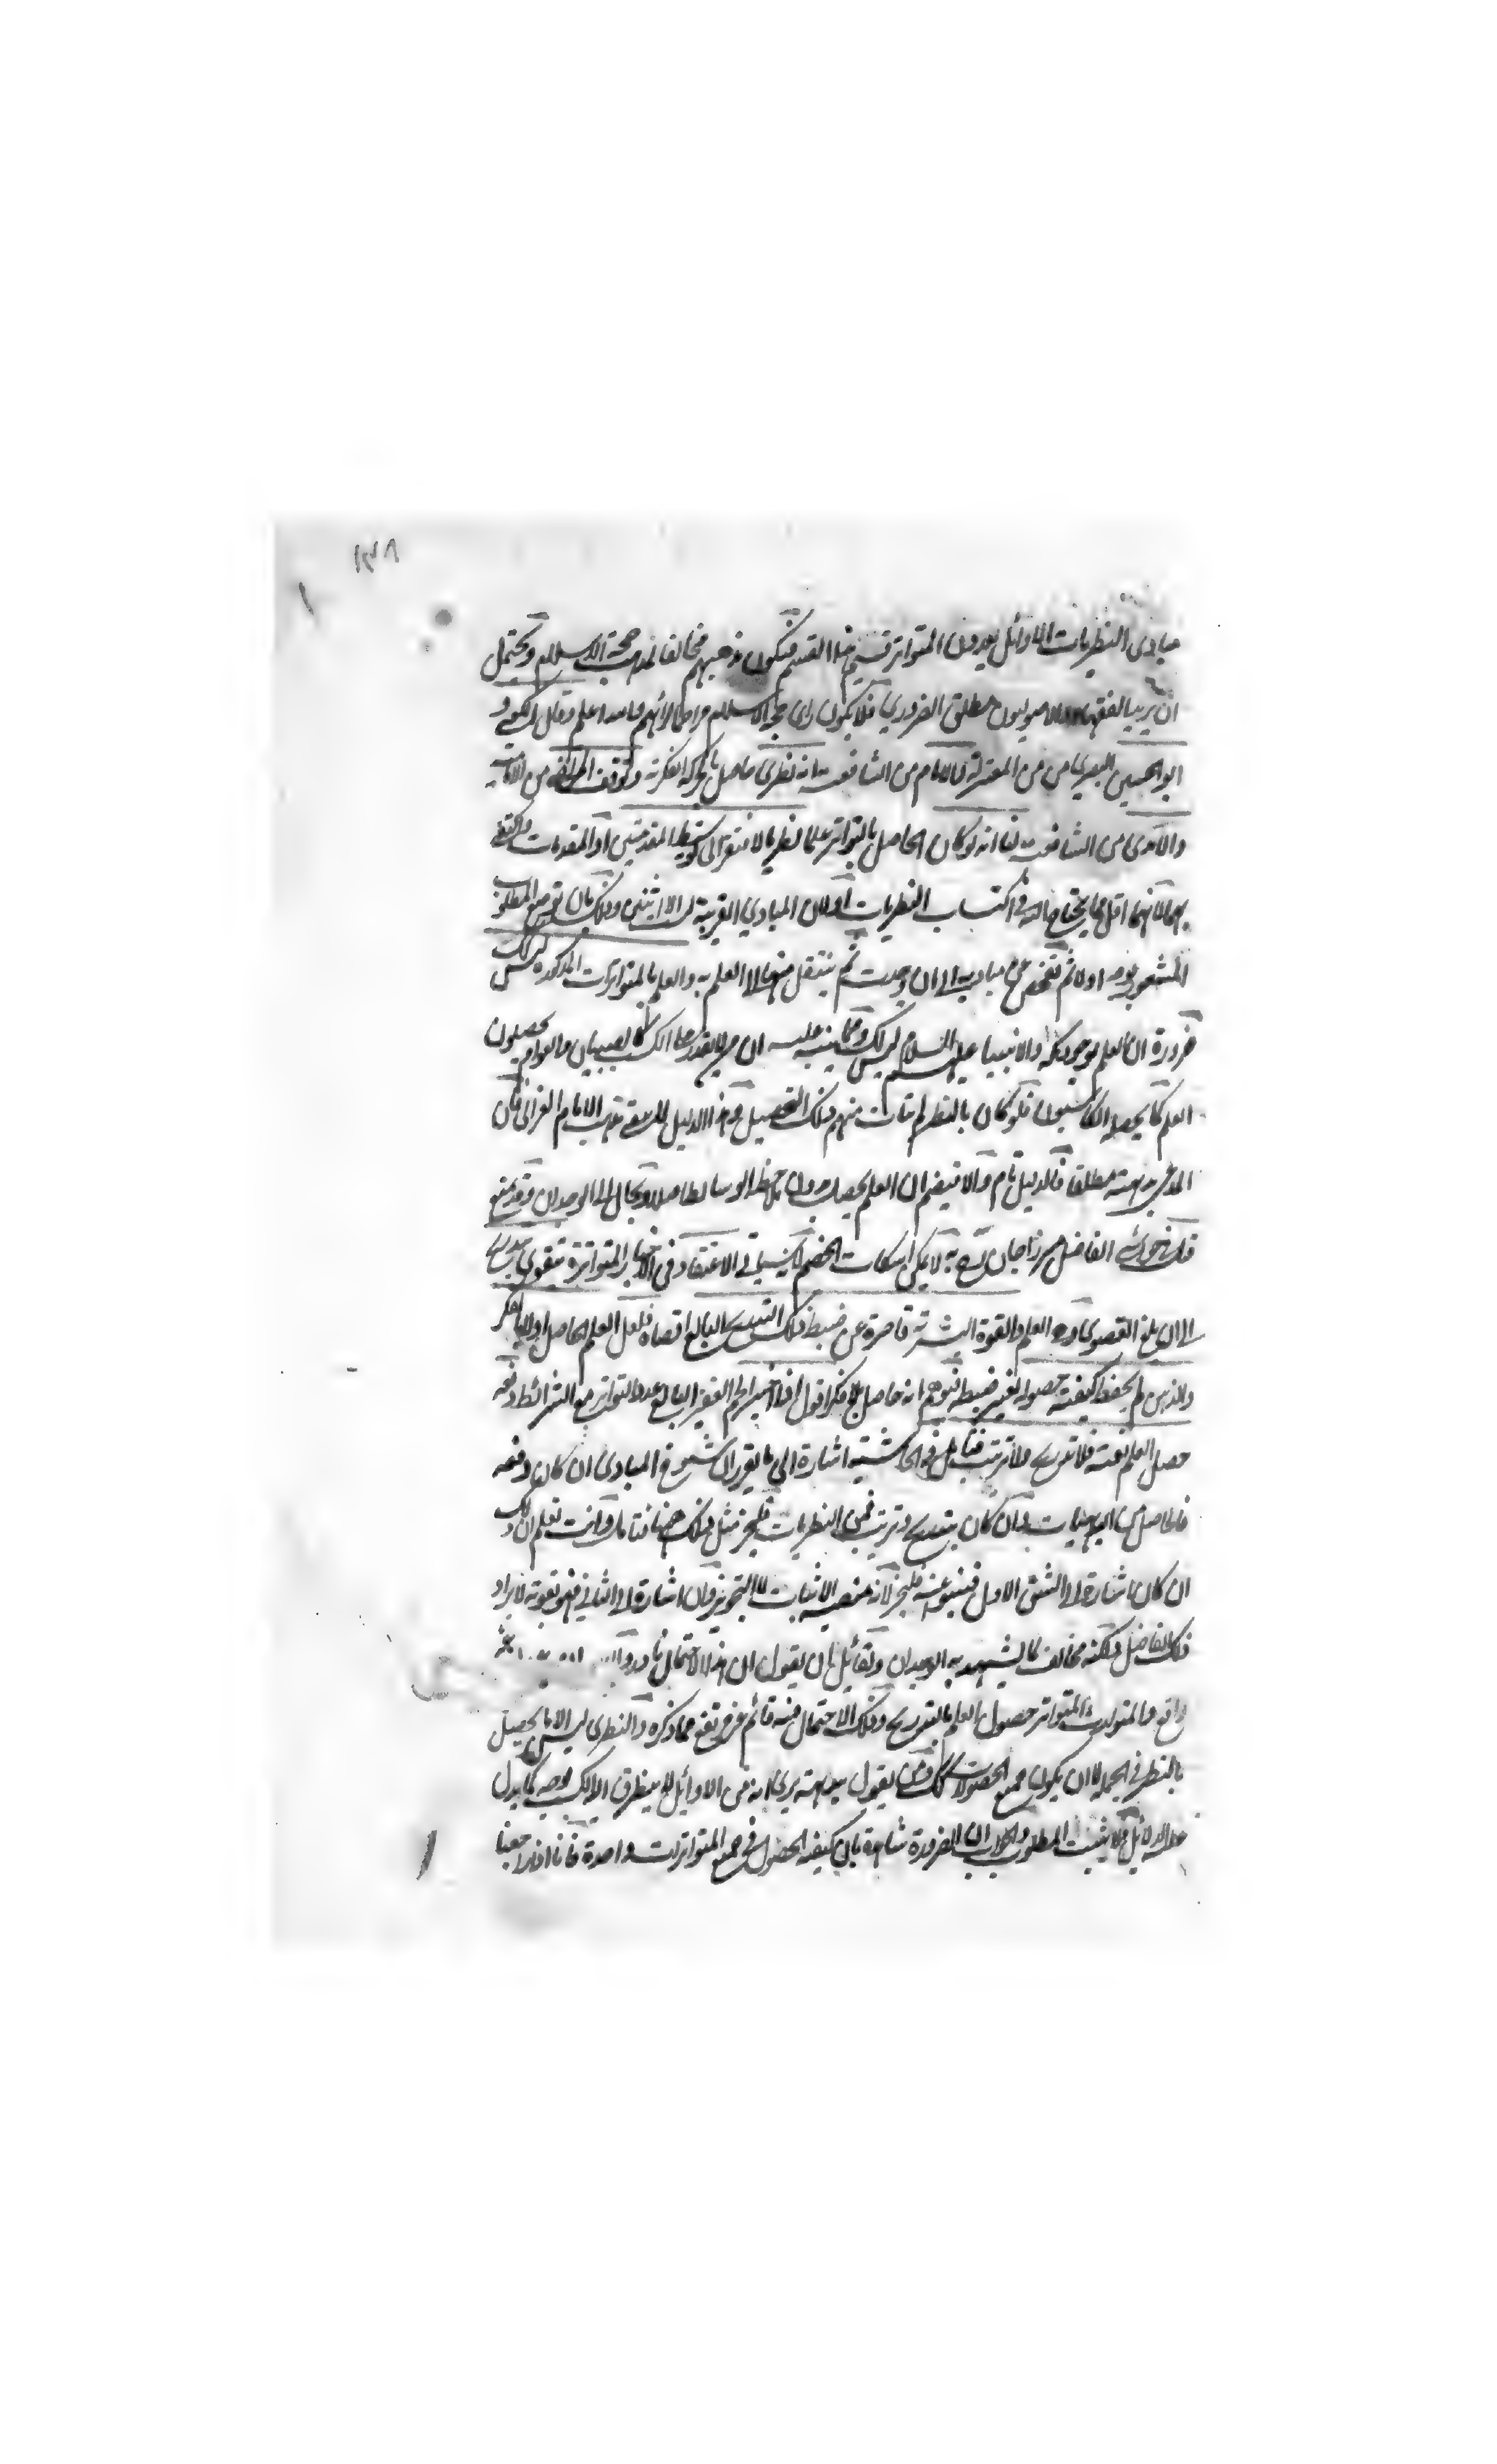 ١٣٨
مبادى النظريات الاوائل يعدون المتواتر قسيم هذا القسم فيكون مذهبهم مخالفا لمذهب حجة الاسلام ويحتمل
ان يريد الفقهاء والاصوليون مطلق الضروري فلا يكون راى حجة الاسلام مراغما لرائهم والله اعلم وقال الكعبي و
ابو الحسين البصري من المعتزلة والامام من الشافعية انه نظرى حاصل بالحركة الفكرية وتوقف المرتضى من الامامية
والآمدى من الشافعية لنا انه لو كان الحاصل بالتواتر علما نظريا لافتقر الى توسيط المقدمتين او المقدمات واكتفى
بهما لانهما اقل ما يحتاج اليه فى اكتساب النظريات اولان المبادي القريبة ليست الا اثنتين وذلك بان توضع المطلوب
المشعور بوجه اولا ثم تفحص عن مباديه الى ان وجدت ثم ينتقل منها الى العلم به والعلم بالمتواترات المذكورة ليس كذلك
ضرورة ان العلم بوجود مكة والانبياء عليهم السلام ليس كذلك ومما ينبه عليه ان من لا يقدر على الكسب كالصبيان والعوام يحصلون
العلم كما يحصله الكاسبون فلو كان بالنظر لم يتات منهم ذلك التحصيل وهذا الدليل مذهب الامام الغزالى فان
المدعى بداهته مطلقا فالدليل تام والا فيضم ان العلم يحصل بدون ملاحظة الوسائط اصلا ويحال الى الوجدان وقد منع
ذلك فى حواشى الفاضل ميرزا جان بانه لا يمكن اسكات الخصم الاعتقاد فى الاخبار المتواترة تتقوى بتدريج
الى ان بلغ القصوى درجة العلم والقوة البشرية قاصرة عن ضبط ذلك التدريج البالغ اقصاه فلعل العلم الحاصل اولا بالفكر
والذهن لم يحفظ كيفية حصوله لعسر ضبطه فتوهم انه حاصل بلا فكر اقول اذا اخبر الجم الغفير البالغ عدد التواتر مع الشرائط دفعة
حصل العلم بغتة فلا تدريج ولا ترتيب فتامل فى الحاشية اشارة الى ما تقرر ان سنوح المبادى ان كان دفعة
فالحاصل من البديهيات وان كان بتدريج وترتيب فمن النظريات فليجز مثل ذلك ههنا فتامل وانت تعلم ان ذلك
ان كان اشارة الى الشق الاول فينبو عنه فليجز لانه منصب الاثبات لا التجويز وان اشارة الى الثاني فهو تقوية لايراد
ذلك الفاضل ولكنه مخالف لما يشهد به الوجدان ولقائل ان يقول ان هذا الاحتمال نادر
واقع والمتولد فى المتواتر حصول العلم بالتدريج وذلك الاحتمال فيه قائم غير مرتفع مما ذكره والنظرى ليس الا ما يحصل
بالنظر فى الجملة لا ان يكون جميع الحصولات كذلك ومن يقول ببداهته يرى انه من الاوائل لا يتطرق اليه الكسب بوجه كما يدل
عليه الدلائل فلا يثبت المطلوب والجواب ان الضرورة شاهدة بان كيفية الحصول فى جميع المتواترات واحدة فانا اذا راجعنا